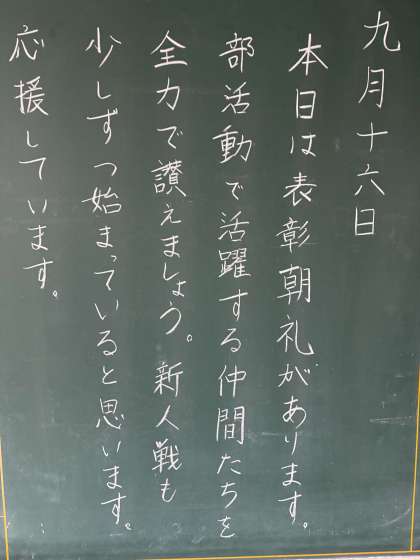 九月十六日
本日は表彰朝礼があります。
部活動で活躍する仲間たちを
全力で讃えましょう。新人戦も
少しずつ始まっていると思います。
応援しています。